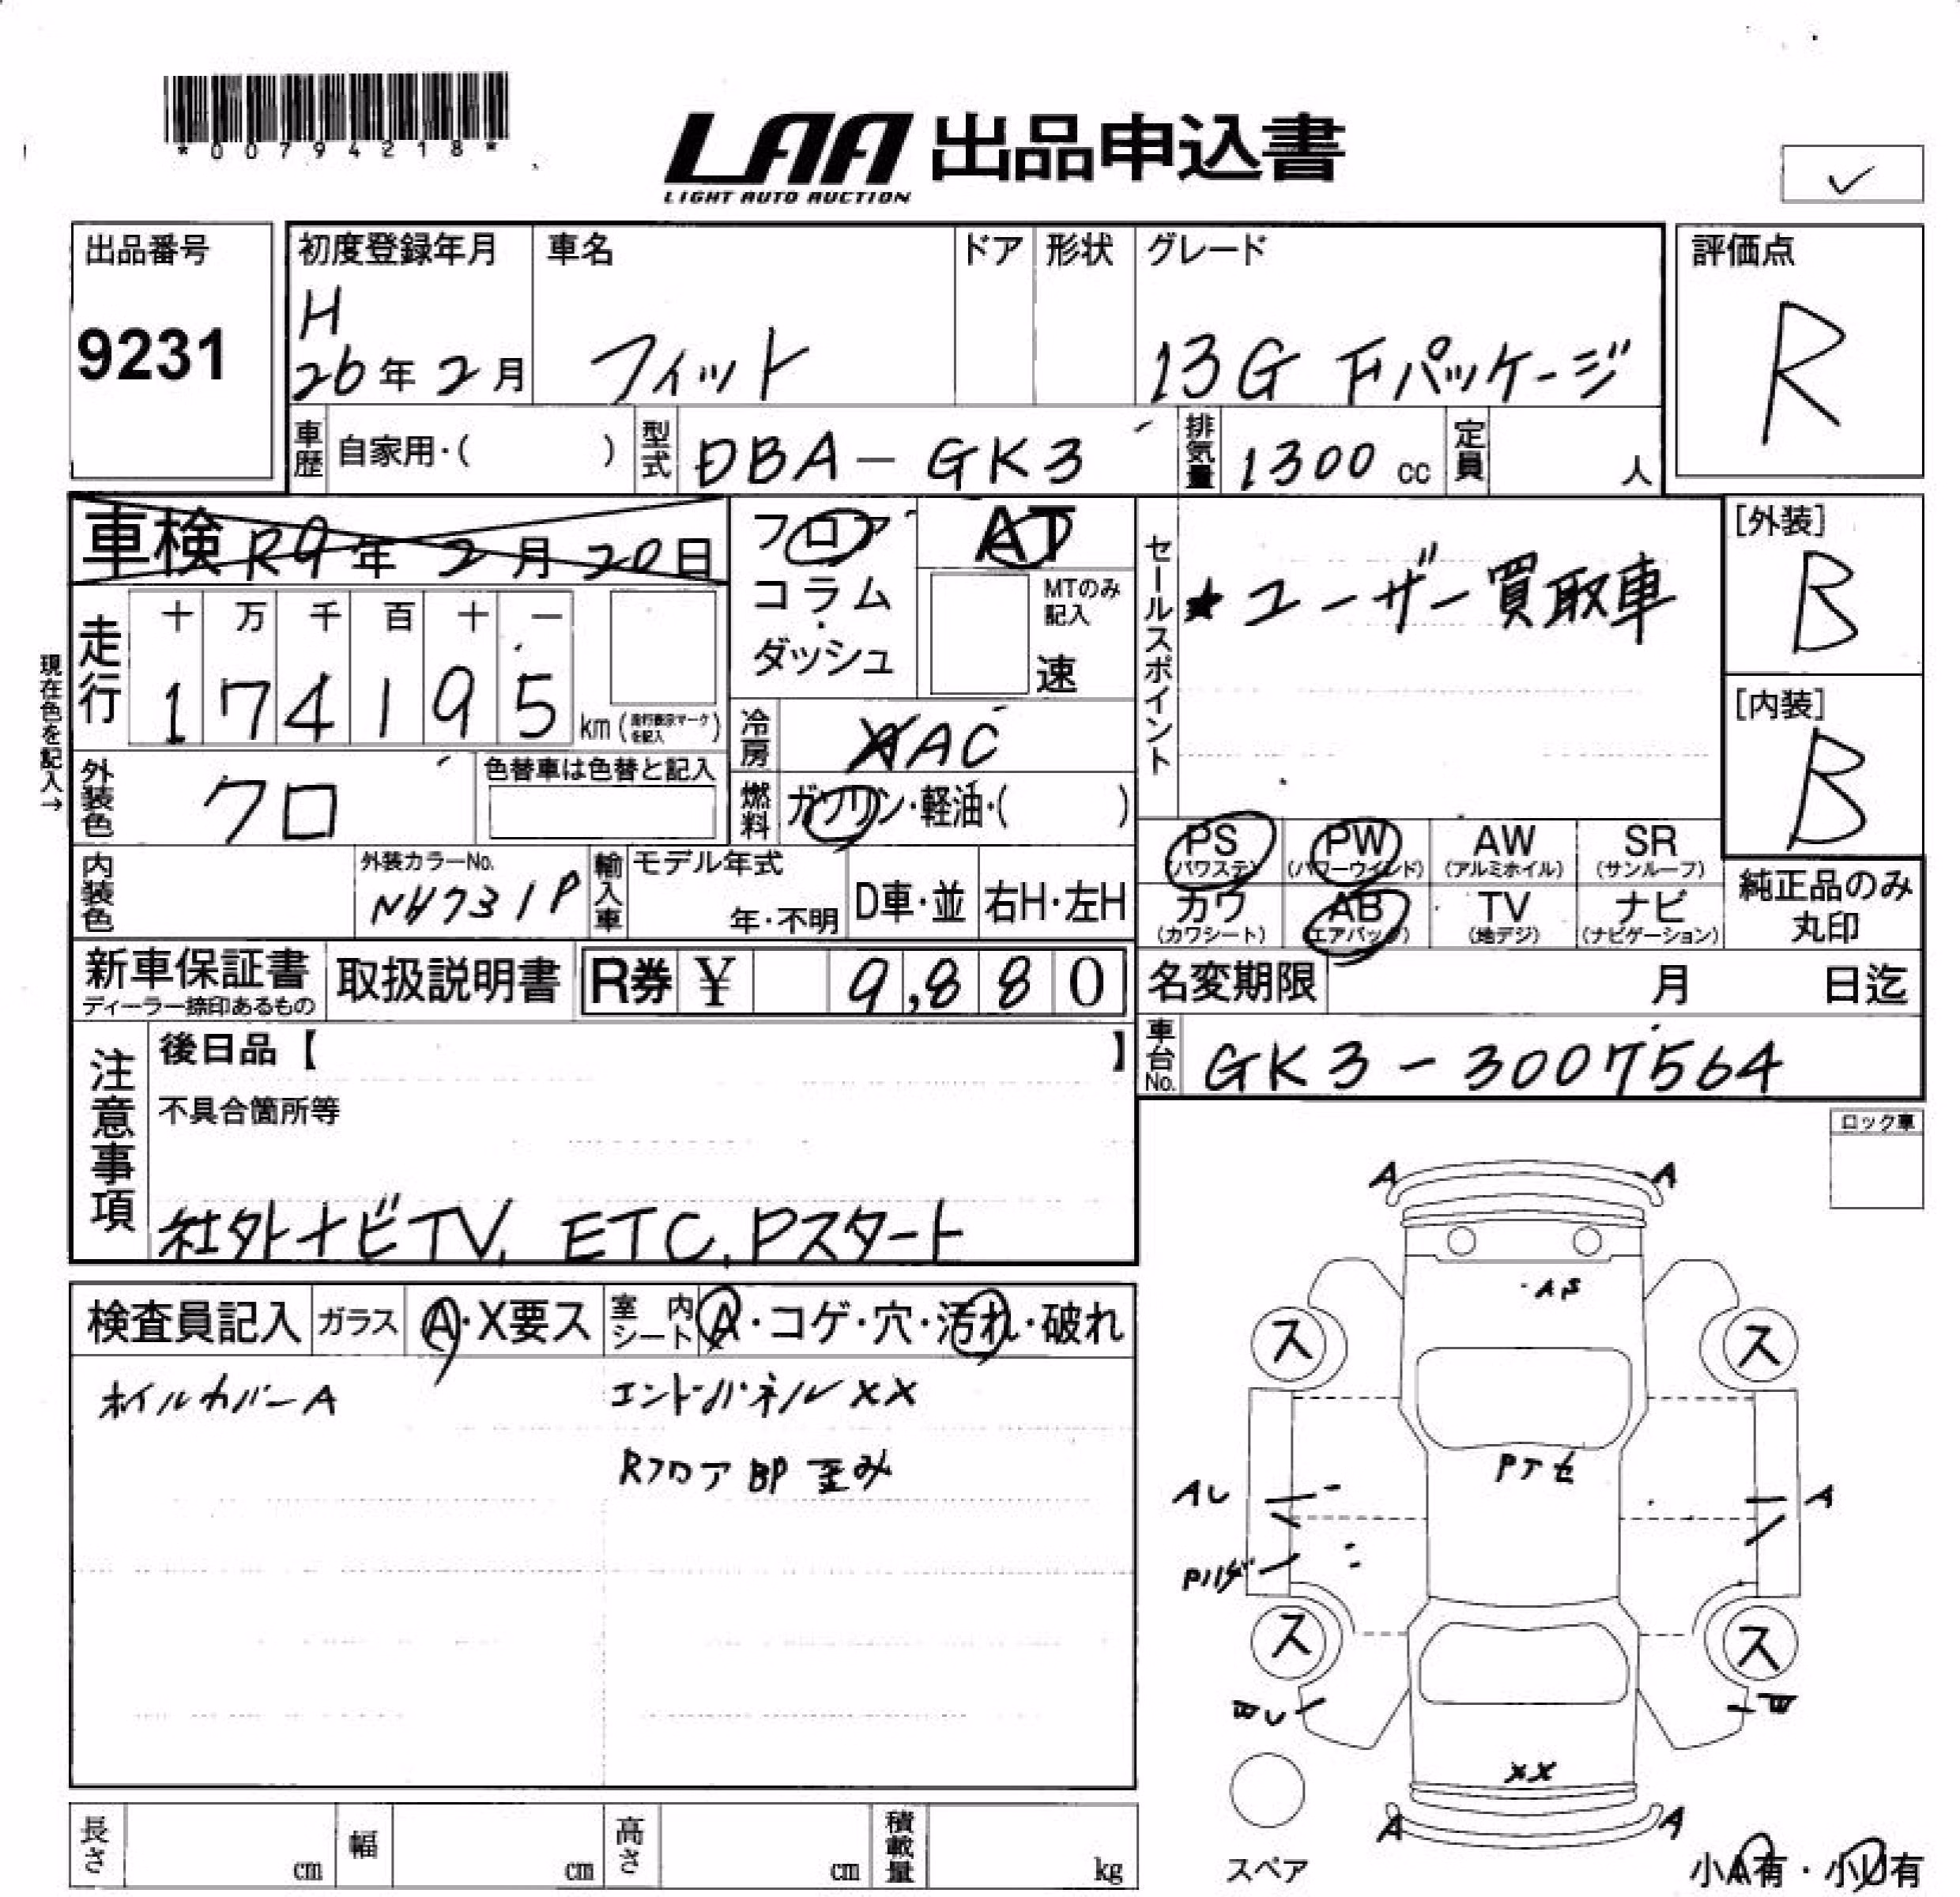 *00794218*
LAA 出品申込書
LIGHT AUTO AUCTION
出品番号
9231
初度登録年月
H
26年2月
車名
フィット
ドア
形状
グレード
13G Fパッケージ
評価点
R
車歴
自家用・( )
型式
DBA-GK3
排気量
1300 cc
定員
人
車検 R9年2月20日
フロア
コラム
・
ダッシュ
AT
MTのみ
記入
速
セールスポイント
★ユーザー買取車
[外装]
B
[内装]
B
現在色を記入→
走行
十 万 千 百 十 一
1 7 4 1 9 5
km (走行表示マークを記入)
冷房
AAC
外装色
クロ
色替車は色替と記入
燃料
ガソリン・軽油・( )
内装色
外装カラーNo.
NH731P
輸入車
モデル年式
年・不明
D車・並
右H・左H
PS
(パワステ)
PW
(パワーウインド)
AW
(アルミホイル)
SR
(サンルーフ)
カワ
(カワシート)
AB
(エアバッグ)
TV
(地デジ)
ナビ
(ナビゲーション)
純正品のみ
丸印
新車保証書
ディーラー捺印あるもの
取扱説明書
R券 ¥ 9,880
名変期限
月 日迄
車台No.
GK3-3007564
注意事項
後日品【 】
不具合箇所等
社外ナビTV, ETC, Pスタート
ロック車
検査員記入
ガラス
A・X要ス
室内シート
A・コゲ・穴・汚れ・破れ
ホイルカバーA
エンドパネルXX
Rフロア BP 歪み
A A
ス ス
Pアセ
AU A
ス ス
XX
A A
スペア
小A有・小U有
長さ
cm
幅
cm
高さ
cm
積載量
kg